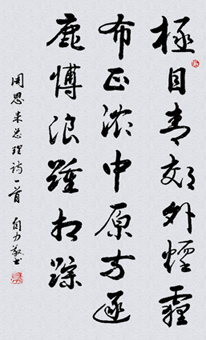 極目青郊外煙霾
布正浓中原方逐
鹿博浪踵相踪
周恩来总理诗一首 自力敬书